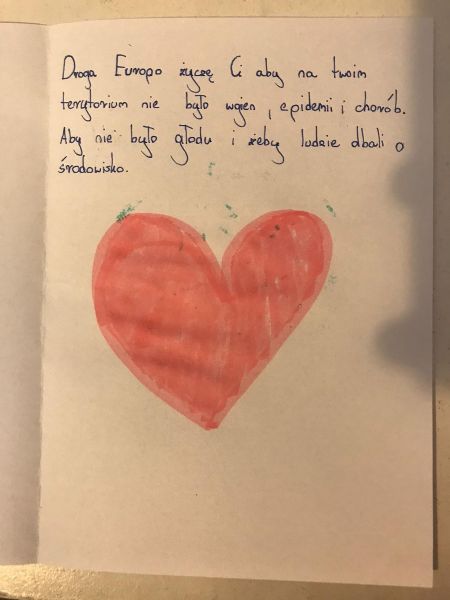 Droga Europo życzę Ci aby na twoim
terytorium nie było wojen, epidemii i chorób.
Aby nie było głodu i żeby ludzie dbali o
środowisko.